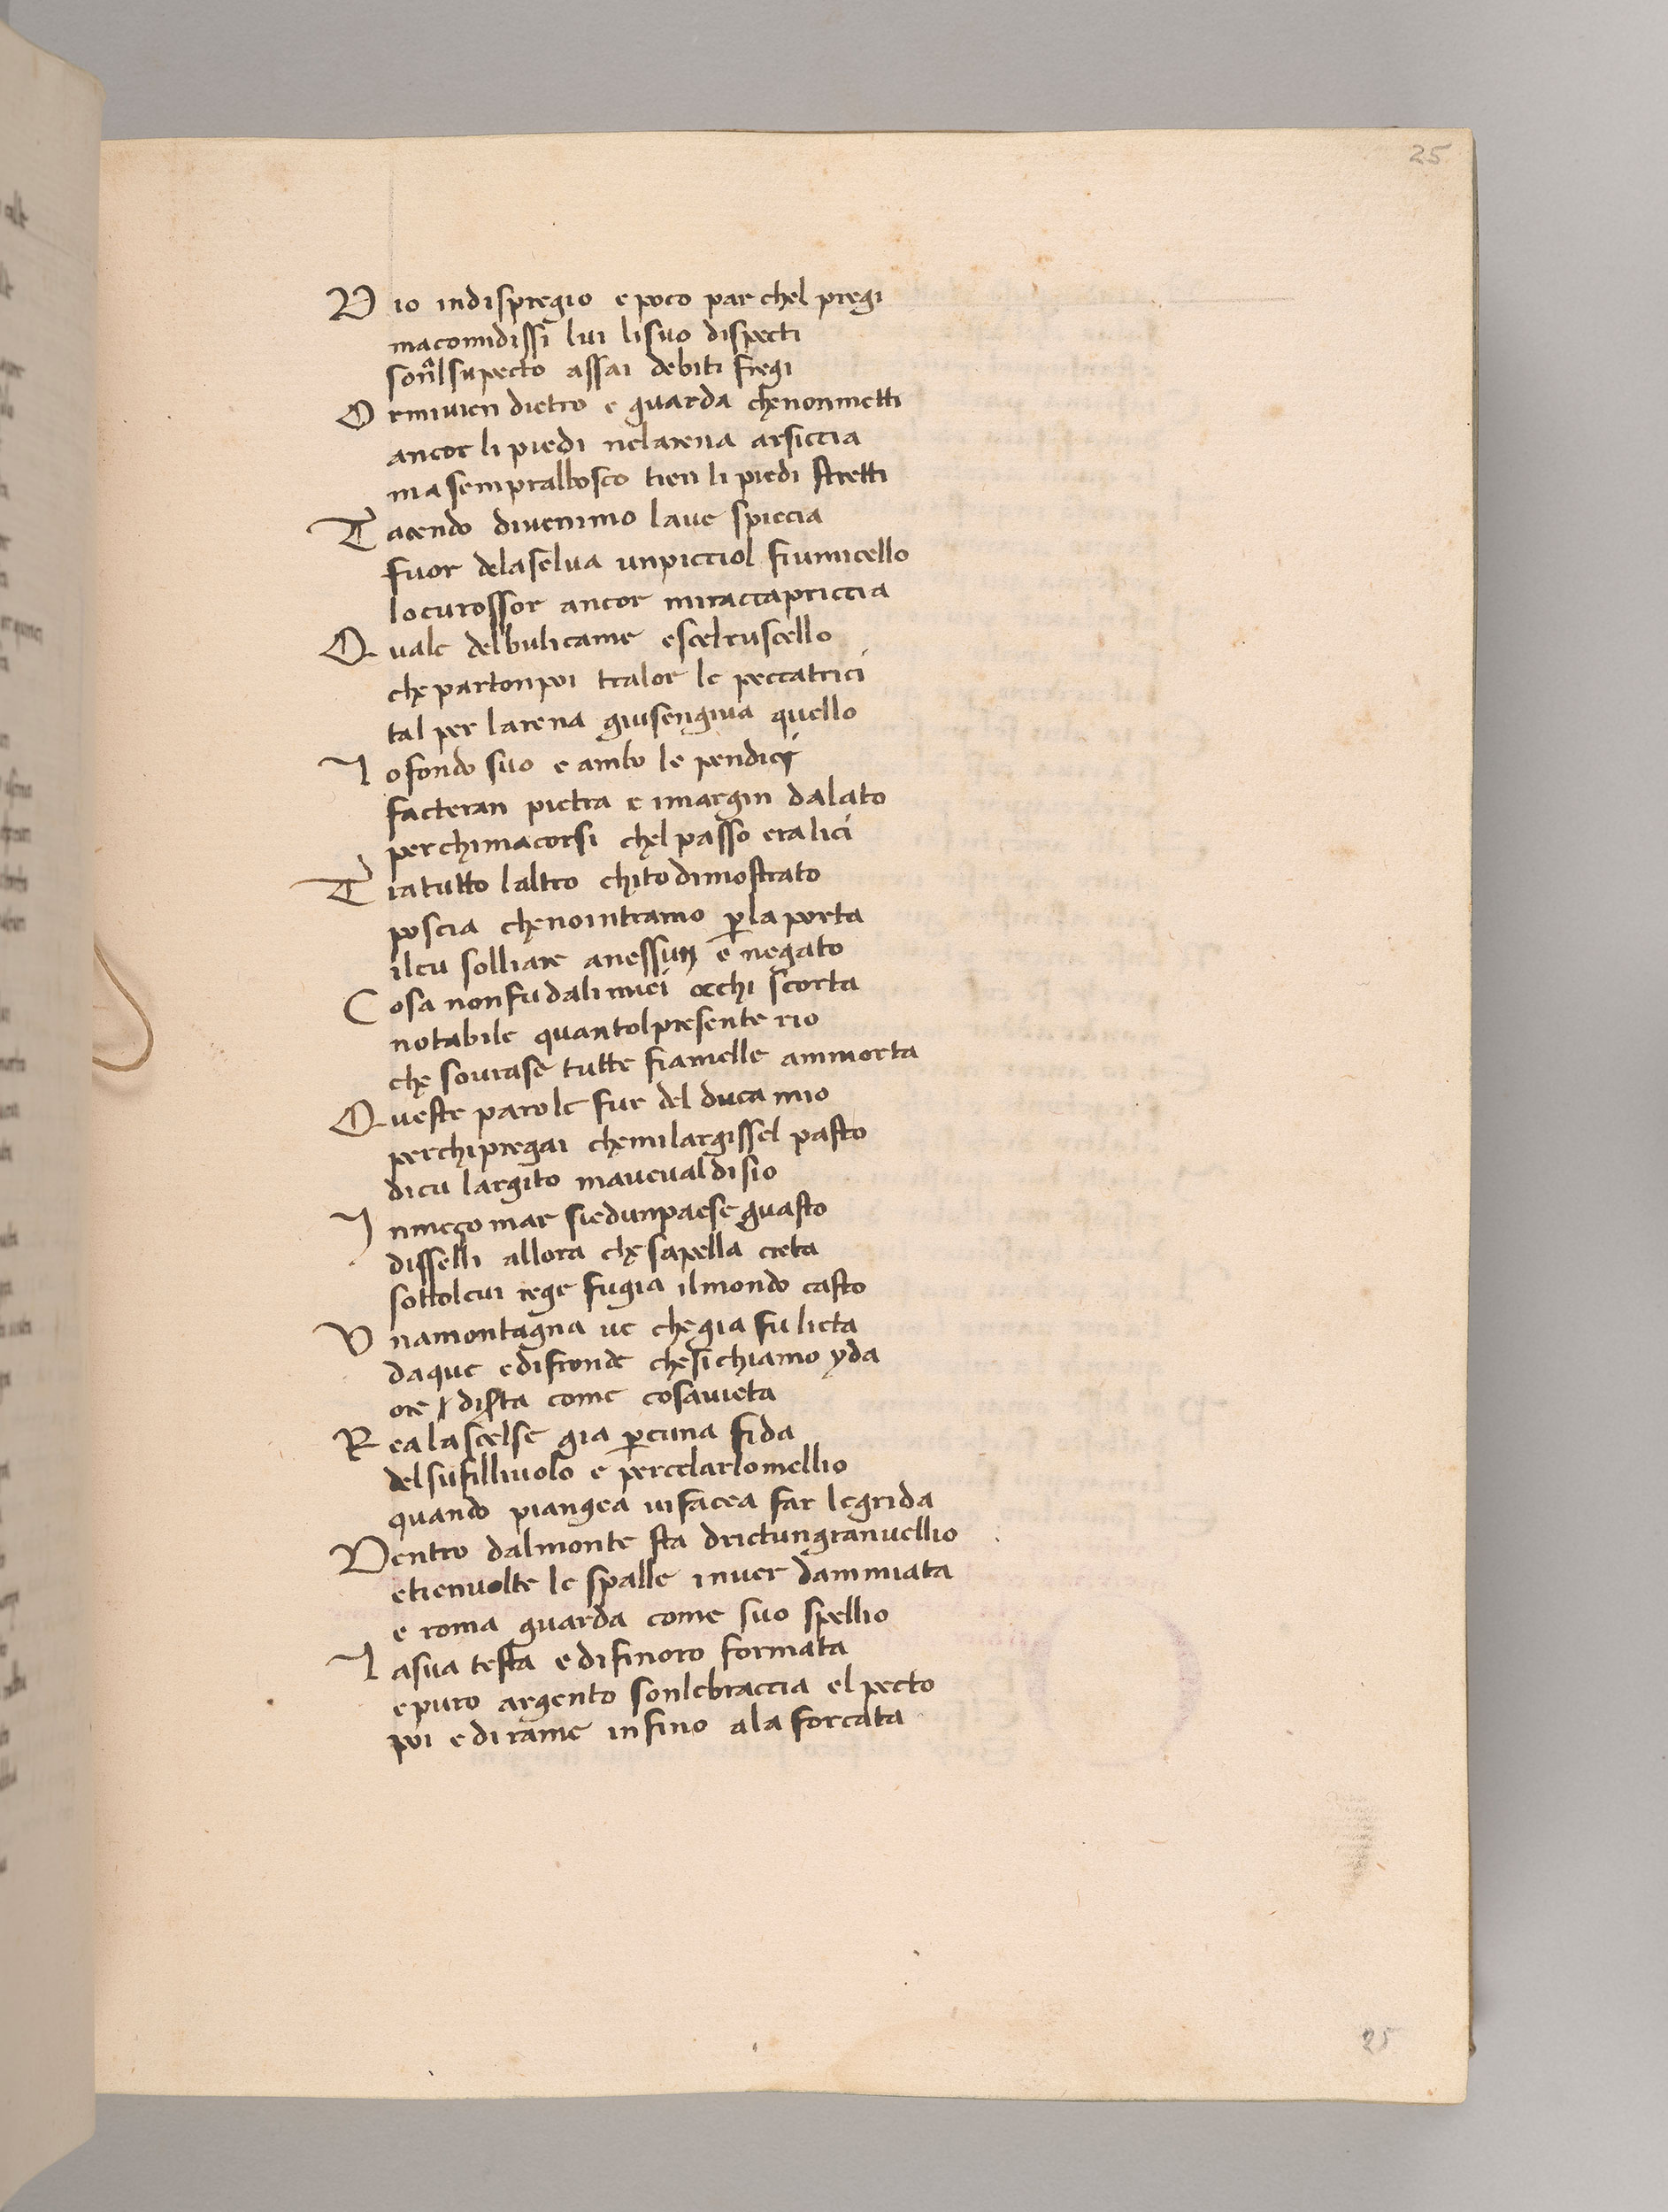 25
D io indispregio e poco par chel pregi
macomidissi lui li suo dispecti
sonol supecto assai debiti fregi
O rmivien dietro e guarda che nonmetti
ancor li piedi nelarena arsiccia
ma sempralbosco tien li piedi stretti
T acendo divenimo lave spiccia
fuor delaselva unpicciol fiumicello
locurossor ancor miraccapriccia
Q uale delbulicame escelruscello
che partonpoi tralor le peccatrici
tal per larena giusengiva quello
L o fondo suo e ambo le pendici
facteran pietra e imargin dalato
perchimacorsi chel passo era lici
T ratutto laltro chito dimostrato
poscia che noi intramo per la porta
ilcu solliare anessun e negato
C osa nonfu dali miei occhi scorta
notabile quantol presente rio
che sovrase tutte fiamelle ammorta
Q ueste parole fur del duca mio
perchi pregai chemilargissel pasto
di cu largito maveval disio
I nmeço mar siedunpaese guasto
disselli allora che sapella creta
sottolcui rege fu gia ilmondo casto
U namontagna ve che gia fu lieta
daque e difronde che si chiamo yda
ore dista come cosavieta
R ea la scelse gia per cuna fida
del su filliuolo e per celarlo mellio
quando piangea vi facea far le grida
D entro dalmonte sta drictungranvellio
etienvolte le spalle inver dammiata
e roma guarda come suo spellio
L asua testa e di finoro formata
e puro argento son le braccia el pecto
poi e dirame infino ala forcata
25